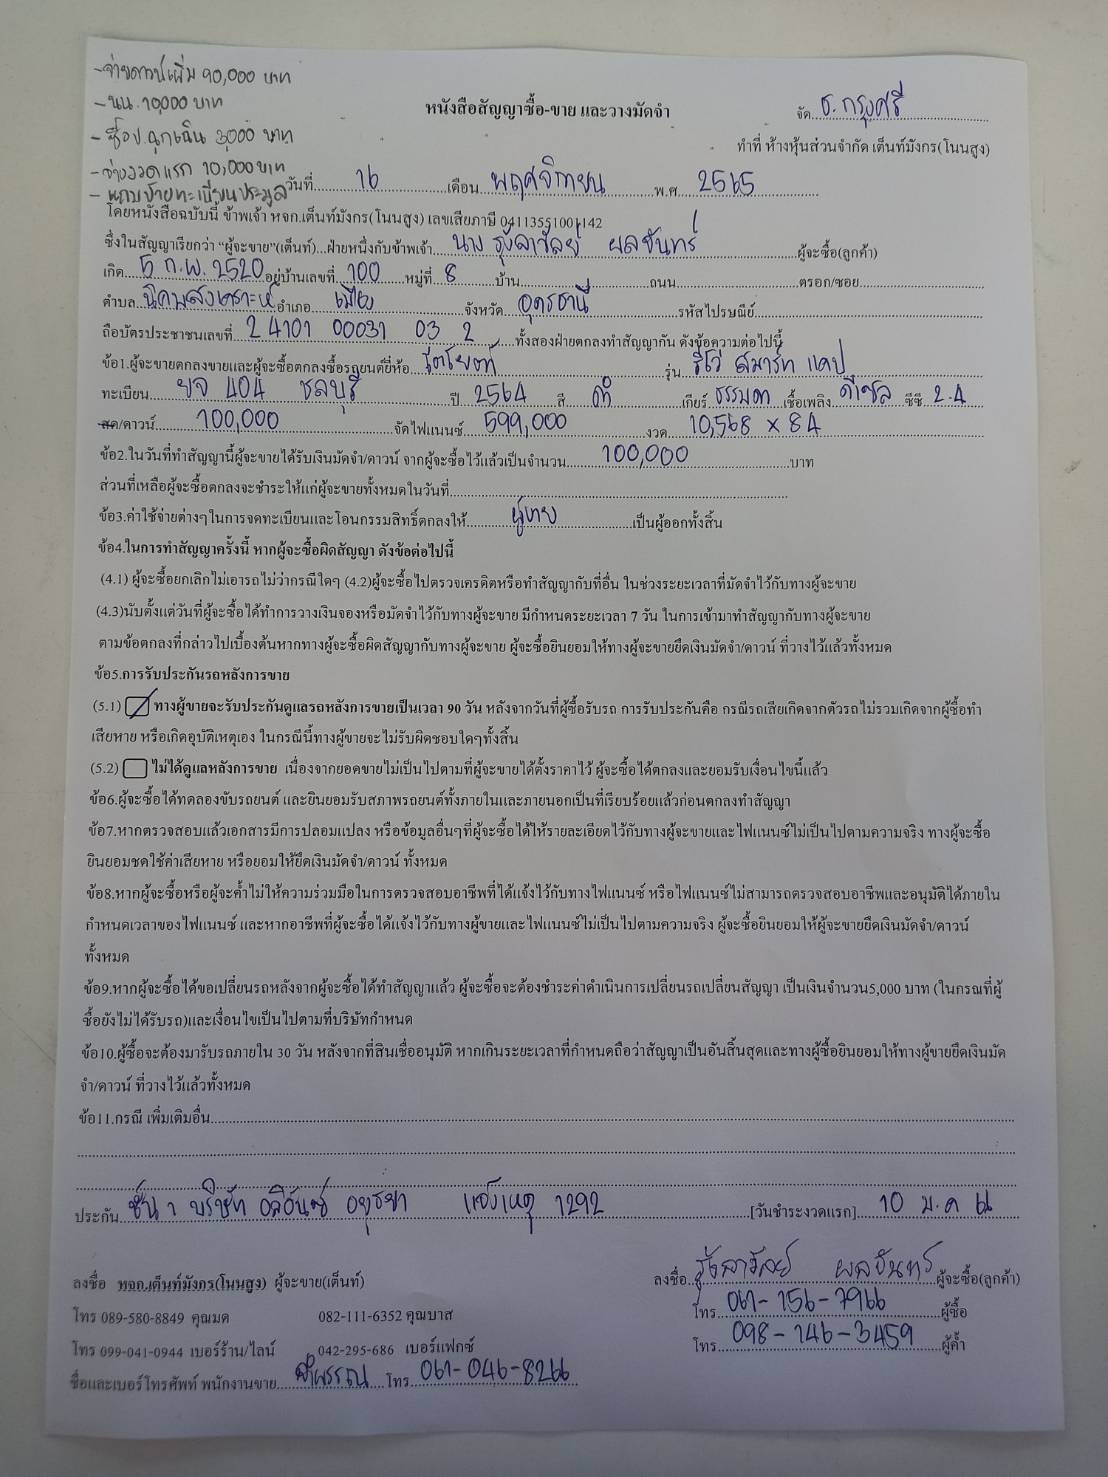 -จ่ายดาวน์เพิ่ม 90,000 บาท
-นน. 10,000 บาท
หนังสือสัญญาซื้อ-ขาย และวางมัดจำ
จัด ธ.กรุงศรี
- ช็อป.ฉุกเฉิน 3000 บาท
ทำที่ ห้างหุ้นส่วนจำกัด เต็นท์มังกร(โนนสูง)
-จ่างวดแรก 10,000 บาท
- ทะเบียนประมูล
วันที่ 16 เดือน พฤศจิกายน พ.ศ. 2565
โดยหนังสือฉบับนี้ ข้าพเจ้า หจก.เต็นท์มังกร(โนนสูง) เลขเสียภาษี 0411355100142
ซึ่งในสัญญาเรียกว่า “ผู้จะขาย”(เต็นท์)...ฝ่ายหนึ่งกับข้าพเจ้า นาง รุ่งลาวัลย์ ผลจันทร์ ผู้จะซื้อ(ลูกค้า)
เกิด 5 ก.พ. 2520 อยู่บ้านเลขที่ 100 หมู่ที่ 8 บ้าน ถนน ตรอก/ซอย
ตำบล นิคมสงเคราะห์ อำเภอ เมือง จังหวัด อุดรธานี รหัสไปรษณีย์
ถือบัตรประชาชนเลขที่ 2 4101 00031 03 2 ทั้งสองฝ่ายตกลงทำสัญญากัน ดังข้อความต่อไปนี้
ข้อ1.ผู้จะขายตกลงขายและผู้จะซื้อตกลงซื้อรถยนต์ยี่ห้อ โตโยต้า รุ่น รีโว่ สมาร์ท แคป
ทะเบียน ยจ 404 ชลบุรี ปี 2564 สี ดำ เกียร์ ธรรมดา เชื้อเพลิง ดีเซล ซีซี 2.4
สด/ดาวน์ 100,000 จัดไฟแนนซ์ 599,000 งวด 10,568 x 84
ข้อ2.ในวันที่ทำสัญญานี้ผู้จะขายได้รับเงินมัดจำ/ดาวน์ จากผู้จะซื้อไว้แล้วเป็นจำนวน 100,000 บาท
ส่วนที่เหลือผู้จะซื้อตกลงจะชำระให้แก่ผู้จะขายทั้งหมดในวันที่
ข้อ3.ค่าใช้จ่ายต่างๆในการจดทะเบียนและโอนกรรมสิทธิ์ตกลงให้ ผู้ขาย เป็นผู้ออกทั้งสิ้น
ข้อ4.ในการทำสัญญาครั้งนี้ หากผู้จะซื้อผิดสัญญา ดังข้อต่อไปนี้
(4.1) ผู้จะซื้อยกเลิกไม่เอารถไม่ว่ากรณีใดๆ (4.2)ผู้จะซื้อไปตรวจเครดิตหรือทำสัญญากับที่อื่น ในช่วงระยะเวลาที่มัดจำไว้กับทางผู้จะขาย
(4.3)นับตั้งแต่วันที่ผู้จะซื้อได้ทำการวางเงินจองหรือมัดจำไว้กับทางผู้จะขาย มีกำหนดระยะเวลา 7 วัน ในการเข้ามาทำสัญญากับทางผู้จะขาย
ตามข้อตกลงที่กล่าวไปเบื้องต้นหากทางผู้จะซื้อผิดสัญญากับทางผู้จะขาย ผู้จะซื้อยินยอมให้ทางผู้จะขายยึดเงินมัดจำ/ดาวน์ ที่วางไว้แล้วทั้งหมด
ข้อ5.การรับประกันรถหลังการขาย
(5.1) ทางผู้ขายจะรับประกันดูแลรถหลังการขายเป็นเวลา 90 วัน หลังจากวันที่ผู้ซื้อรับรถ การรับประกันคือ กรณีรถเสียเกิดจากตัวรถไม่รวมเกิดจากผู้ซื้อทำ
เสียหาย หรือเกิดอุบัติเหตุเอง ในกรณีนี้ทางผู้ขายจะไม่รับผิดชอบใดๆทั้งสิ้น
(5.2) ไม่ได้ดูแลหลังการขาย เนื่องจากยอดขายไม่เป็นไปตามที่ผู้จะขายได้ตั้งราคาไว้ ผู้จะซื้อได้ตกลงและยอมรับเงื่อนไขนี้แล้ว
ข้อ6.ผู้จะซื้อได้ทดลองขับรถยนต์ และยินยอมรับสภาพรถยนต์ทั้งภายในและภายนอกเป็นที่เรียบร้อยแล้วก่อนตกลงทำสัญญา
ข้อ7.หากตรวจสอบแล้วเอกสารมีการปลอมแปลง หรือข้อมูลอื่นๆที่ผู้จะซื้อได้ให้รายละเอียดไว้กับทางผู้จะขายและไฟแนนซ์ไม่เป็นไปตามความจริง ทางผู้จะซื้อ
ยินยอมชดใช้ค่าเสียหาย หรือยอมให้ยึดเงินมัดจำ/ดาวน์ ทั้งหมด
ข้อ8.หากผู้จะซื้อหรือผู้จะค้ำไม่ให้ความร่วมมือในการตรวจสอบอาชีพที่ได้แจ้งไว้กับทางไฟแนนซ์ หรือไฟแนนซ์ไม่สามารถตรวจสอบอาชีพและอนุมัติได้ภายใน
กำหนดเวลาของไฟแนนซ์ และหากอาชีพที่ผู้จะซื้อได้แจ้งไว้กับทางผู้ขายและไฟแนนซ์ไม่เป็นไปตามความจริง ผู้จะซื้อยินยอมให้ผู้จะขายยึดเงินมัดจำ/ดาวน์
ทั้งหมด
ข้อ9.หากผู้จะซื้อได้ขอเปลี่ยนรถหลังจากผู้จะซื้อได้ทำสัญญาแล้ว ผู้จะซื้อจะต้องชำระค่าดำเนินการเปลี่ยนรถเปลี่ยนสัญญา เป็นเงินจำนวน5,000 บาท (ในกรณที่ผู้
ซื้อยังไม่ได้รับรถ)และเงื่อนไขเป็นไปตามที่บริษัทกำหนด
ข้อ10.ผู้ซื้อจะต้องมารับรถภายใน 30 วัน หลังจากที่สินเชื่ออนุมัติ หากเกินระยะเวลาที่กำหนดถือว่าสัญญาเป็นอันสิ้นสุดและทางผู้ซื้อยินยอมให้ทางผู้ขายยึดเงินมัด
จำ/ดาวน์ ที่วางไว้แล้วทั้งหมด
ข้อ11.กรณี เพิ่มเติมอื่น
ประกัน ชั้น 1 บริษัท อลิอันซ์ อยุธยา แจ้งเหตุ 1292 [วันชำระงวดแรก] 10 ม.ค 66
ลงชื่อ หจก.เต็นท์มังกร(โนนสูง) ผู้จะขาย(เต็นท์)
ลงชื่อ รุ่งลาวัลย์ ผลจันทร์ ผู้จะซื้อ(ลูกค้า)
โทร 089-580-8849 คุณมด 082-111-6352 คุณบาส
โทร 061-156-7966 ผู้ซื้อ
โทร 099-041-0944 เบอร์ร้าน/ไลน์ 042-295-686 เบอร์แฟกซ์
โทร 098-146-3459 ผู้ค้ำ
ชื่อและเบอร์โทรศัพท์ พนักงานขาย โทร 061-046-8266